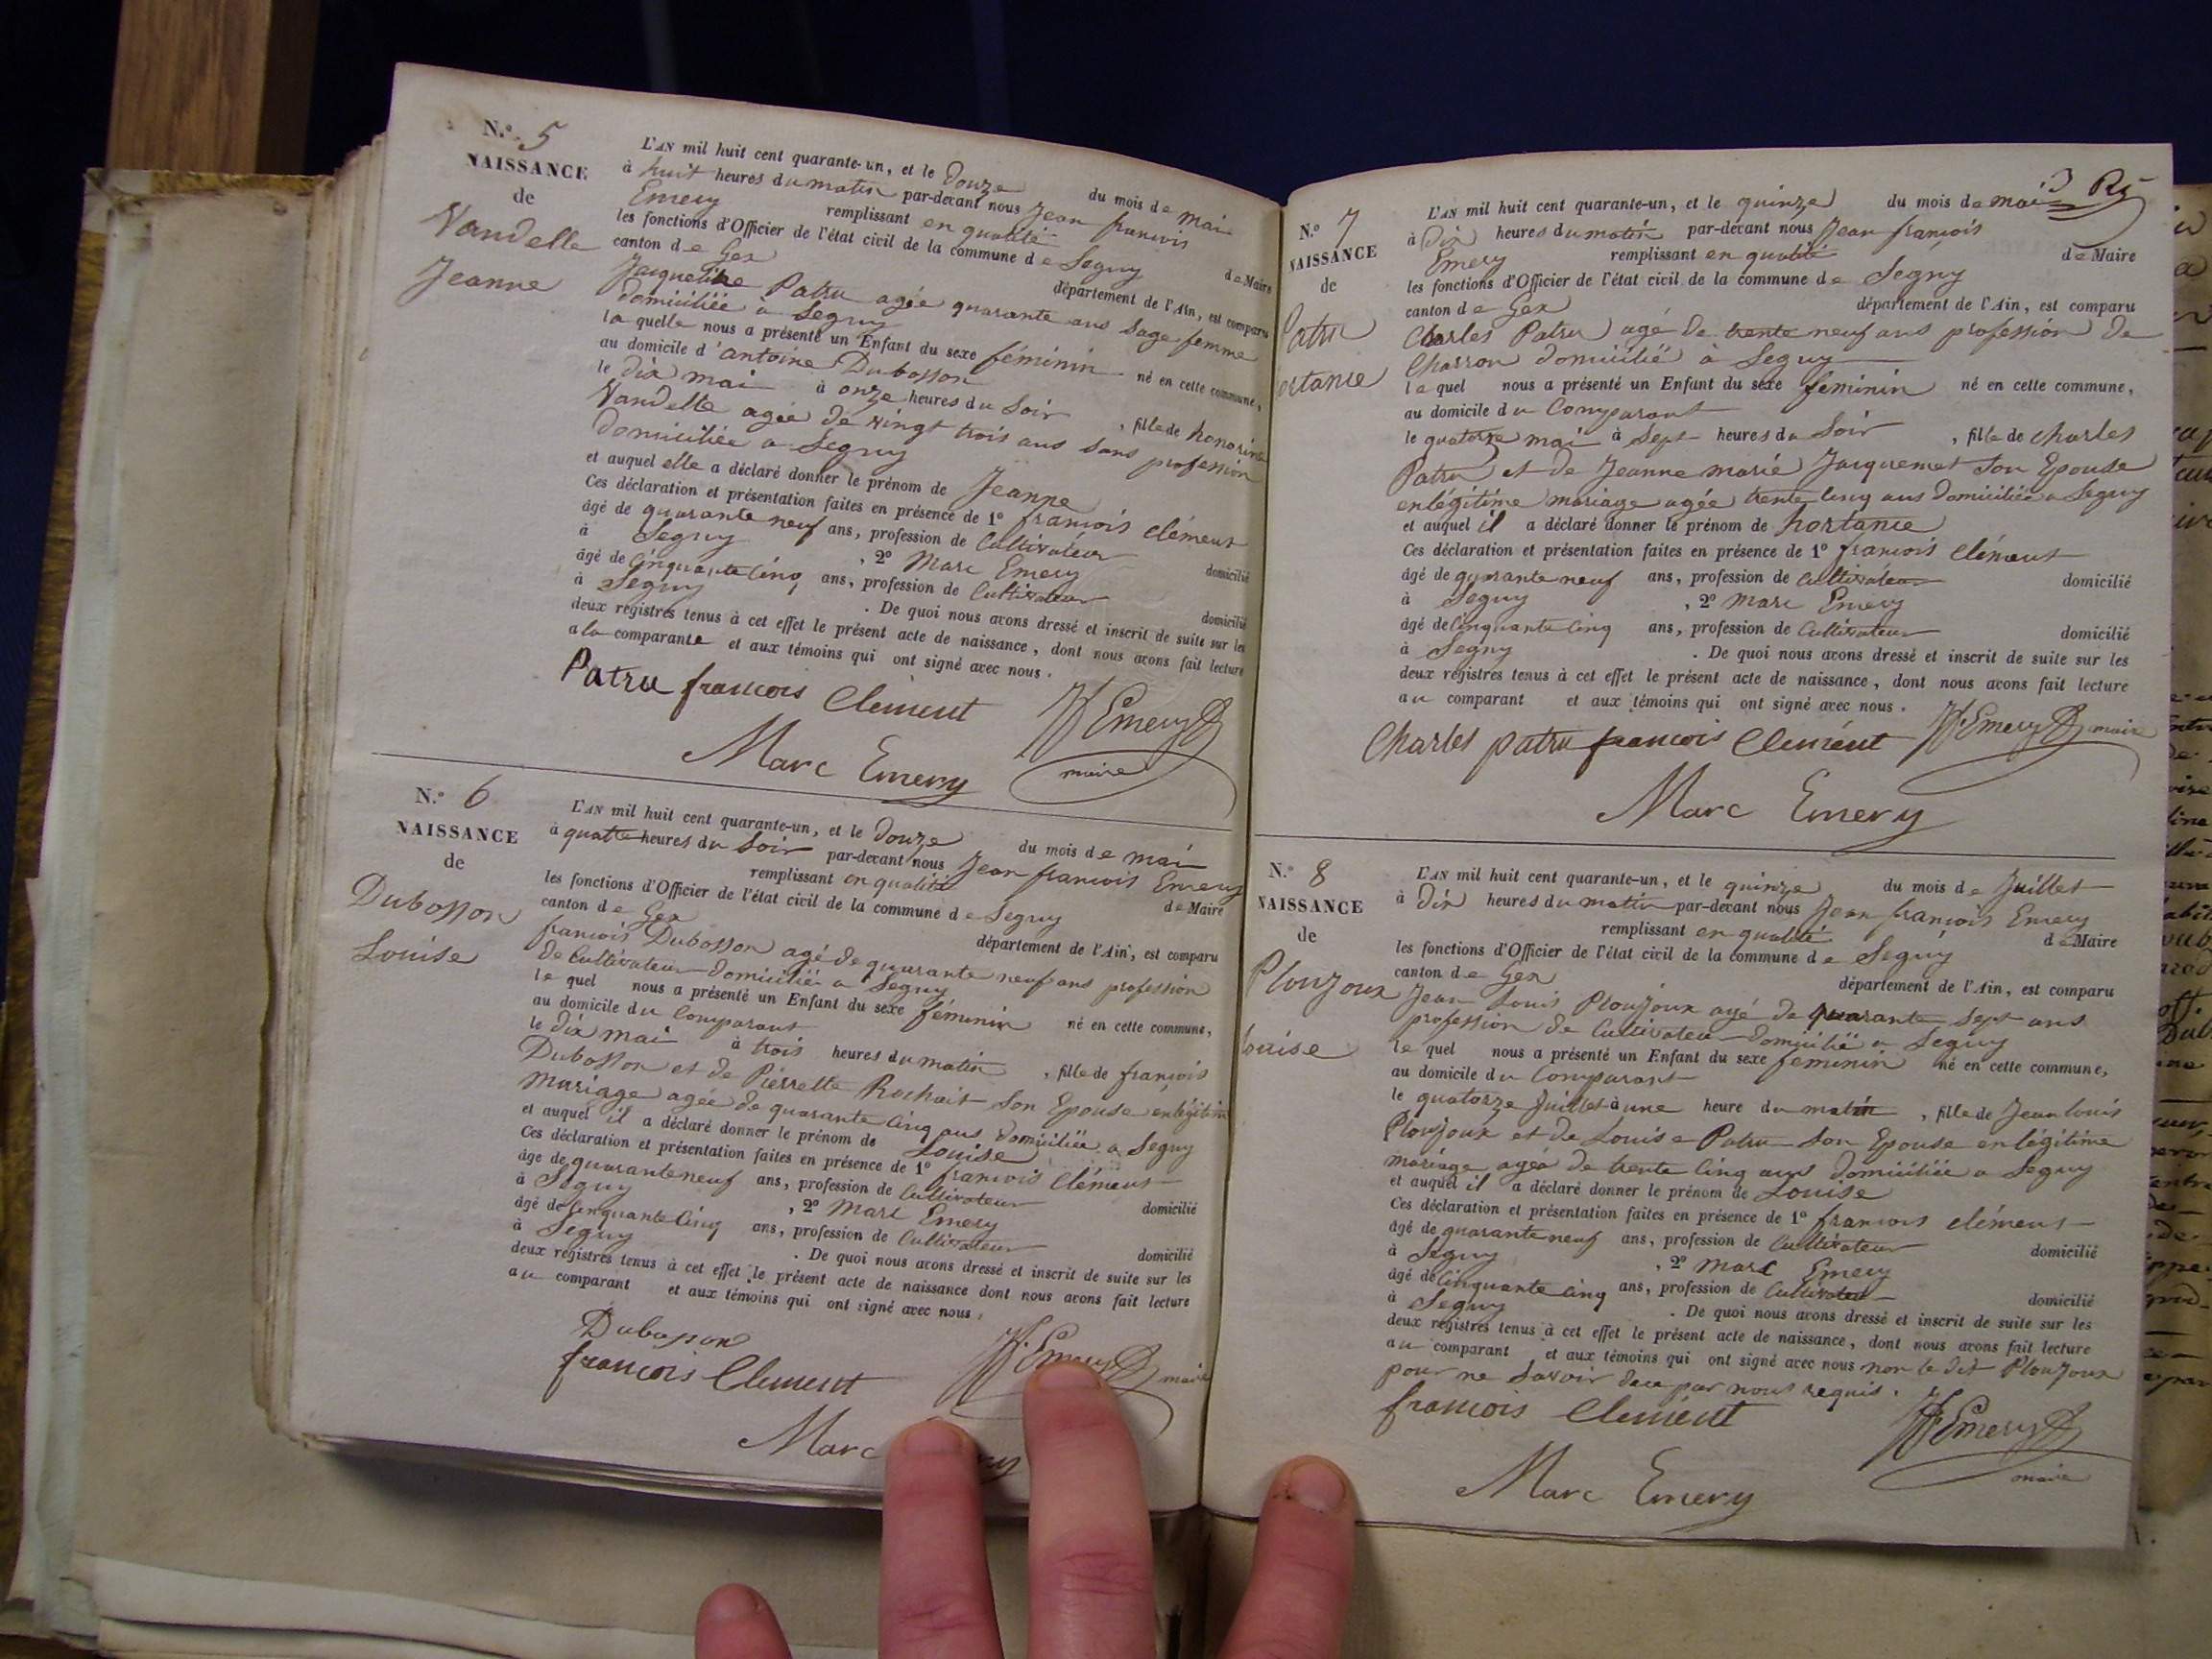 N.º 5
NAISSANCE
de
Vandelle
Jeanne
L'AN mil huit cent quarante-un, et le Douze du mois de mai
à huit heures du matin par-devant nous Jean françois
Emery remplissant en qualité de Maire
les fonctions d'Officier de l'état civil de la commune de Segny
canton de Gex département de l'Ain, est comparu
Jacqueline Patru agée quarante ans Sage femme
domiciliée à Segny
la quelle nous a présenté un Enfant du sexe féminin né en cette commune,
au domicile d'antoine Dubosson
le dix mai à onze heures du Soir, fille de honorine
Vandelle agée de vingt trois ans sans profession
Domiciliée a Segny
et auquel elle a déclaré donner le prénom de Jeanne
Ces déclaration et présentation faites en présence de 1º françois clément
âgé de quarante neuf ans, profession de Cultivateur domicilié
à Segny, 2º Marc Emery
âgé de Cinquante Cinq ans, profession de Cultivateur domicilié
à Segny. De quoi nous avons dressé et inscrit de suite sur les
deux registres tenus à cet effet le présent acte de naissance, dont nous avons fait lecture
a la comparante et aux témoins qui ont signé avec nous.
Patru françois Clement JfEmery
Marc Emery maire
N.º 6
NAISSANCE
de
Dubosson
Louise
L'AN mil huit cent quarante-un, et le Douze du mois de mai
à quatte heures du Soir par-devant nous Jean françois Emery
remplissant en qualité de Maire
les fonctions d'Officier de l'état civil de la commune de Segny
canton de Gex département de l'Ain, est comparu
françois Dubosson agé de quarante neuf ans profession
De Cultivateur Domicilié a Segny
le quel nous a présenté un Enfant du sexe féminin né en cette commune,
au domicile du Comparant
le dix mai à trois heures du matin, fille de françois
Dubosson et de Pierrette Rochait Son Epouse en légitime
Mariage agée de quarante Cinq ans Domiciliée a Segny
et auquel il a déclaré donner le prénom de Louise
Ces déclaration et présentation faites en présence de 1º françois Clément
âgé de quarante neuf ans, profession de Cultivateur domicilié
à Segny, 2º Marc Emery
âgé de Cinquante Cinq ans, profession de Cultivateur domicilié
à Segny. De quoi nous avons dressé et inscrit de suite sur les
deux registres tenus à cet effet le présent acte de naissance dont nous avons fait lecture
au comparant et aux témoins qui ont signé avec nous.
Dubosson
françois Clement JfEmery maire
Marc
N.º 7
NAISSANCE
de
Patru
ortance
L'AN mil huit cent quarante-un, et le quinze du mois de mai
à Dix heures du matin par-devant nous Jean françois
Emery remplissant en qualité de Maire
les fonctions d'Officier de l'état civil de la commune de Segny
canton de Gex département de l'Ain, est comparu
Charles Patru agé De trente neuf ans profession De
Charron domicilié à Segny
le quel nous a présenté un Enfant du sexe feminin né en cette commune,
au domicile du Comparant
le quatorze mai à Sept heures du Soir, fille de charles
Patru et de Jeanne marie Jacquemet Son Epouse
en légitime mariage agée trente Cinq ans Domiciliée a Segny
et auquel il a déclaré donner le prénom de hortance
Ces déclaration et présentation faites en présence de 1º françois Clément
âgé de quarante neuf ans, profession de Cultivateur domicilié
à Segny, 2º Marc Emery
âgé de Cinquante Cinq ans, profession de Cultivateur domicilié
à Segny. De quoi nous avons dressé et inscrit de suite sur les
deux registres tenus à cet effet le présent acte de naissance, dont nous avons fait lecture
au comparant et aux témoins qui ont signé avec nous.
Charles patru francois Clement JfEmery maire
Marc Emery
N.º 8
NAISSANCE
de
Ploujoux
Louise
L'AN mil huit cent quarante-un, et le quinze du mois de Juillet
à Dix heures du matin par-devant nous Jean françois Emery
remplissant en qualité de Maire
les fonctions d'Officier de l'état civil de la commune de Segny
canton de Gex département de l'Ain, est comparu
Jean Louis Ploujoux agé de quarante Sept ans
profession De Cultivateur Domicilié a Segny
le quel nous a présenté un Enfant du sexe feminin né en cette commune,
au domicile du Comparant
le quatorze Juillet à une heure du matin, fille de Jean louis
Ploujoux et de Louise Patru Son Epouse en légitime
mariage agée De trente Cinq ans Domiciliée a Segny
et auquel il a déclaré donner le prénom de Louise
Ces déclaration et présentation faites en présence de 1º françois Clément
âgé de quarante neuf ans, profession de Cultivateur domicilié
à Segny, 2º Marc Emery
âgé de Cinquante Cinq ans, profession de Cultivateur domicilié
à Segny. De quoi nous avons dressé et inscrit de suite sur les
deux registres tenus à cet effet le présent acte de naissance, dont nous avons fait lecture
au comparant et aux témoins qui ont signé avec nous non le dit Ploujoux
pour ne Savoir de ce par nous requis.
francois Clement JfEmery
Marc Emery maire